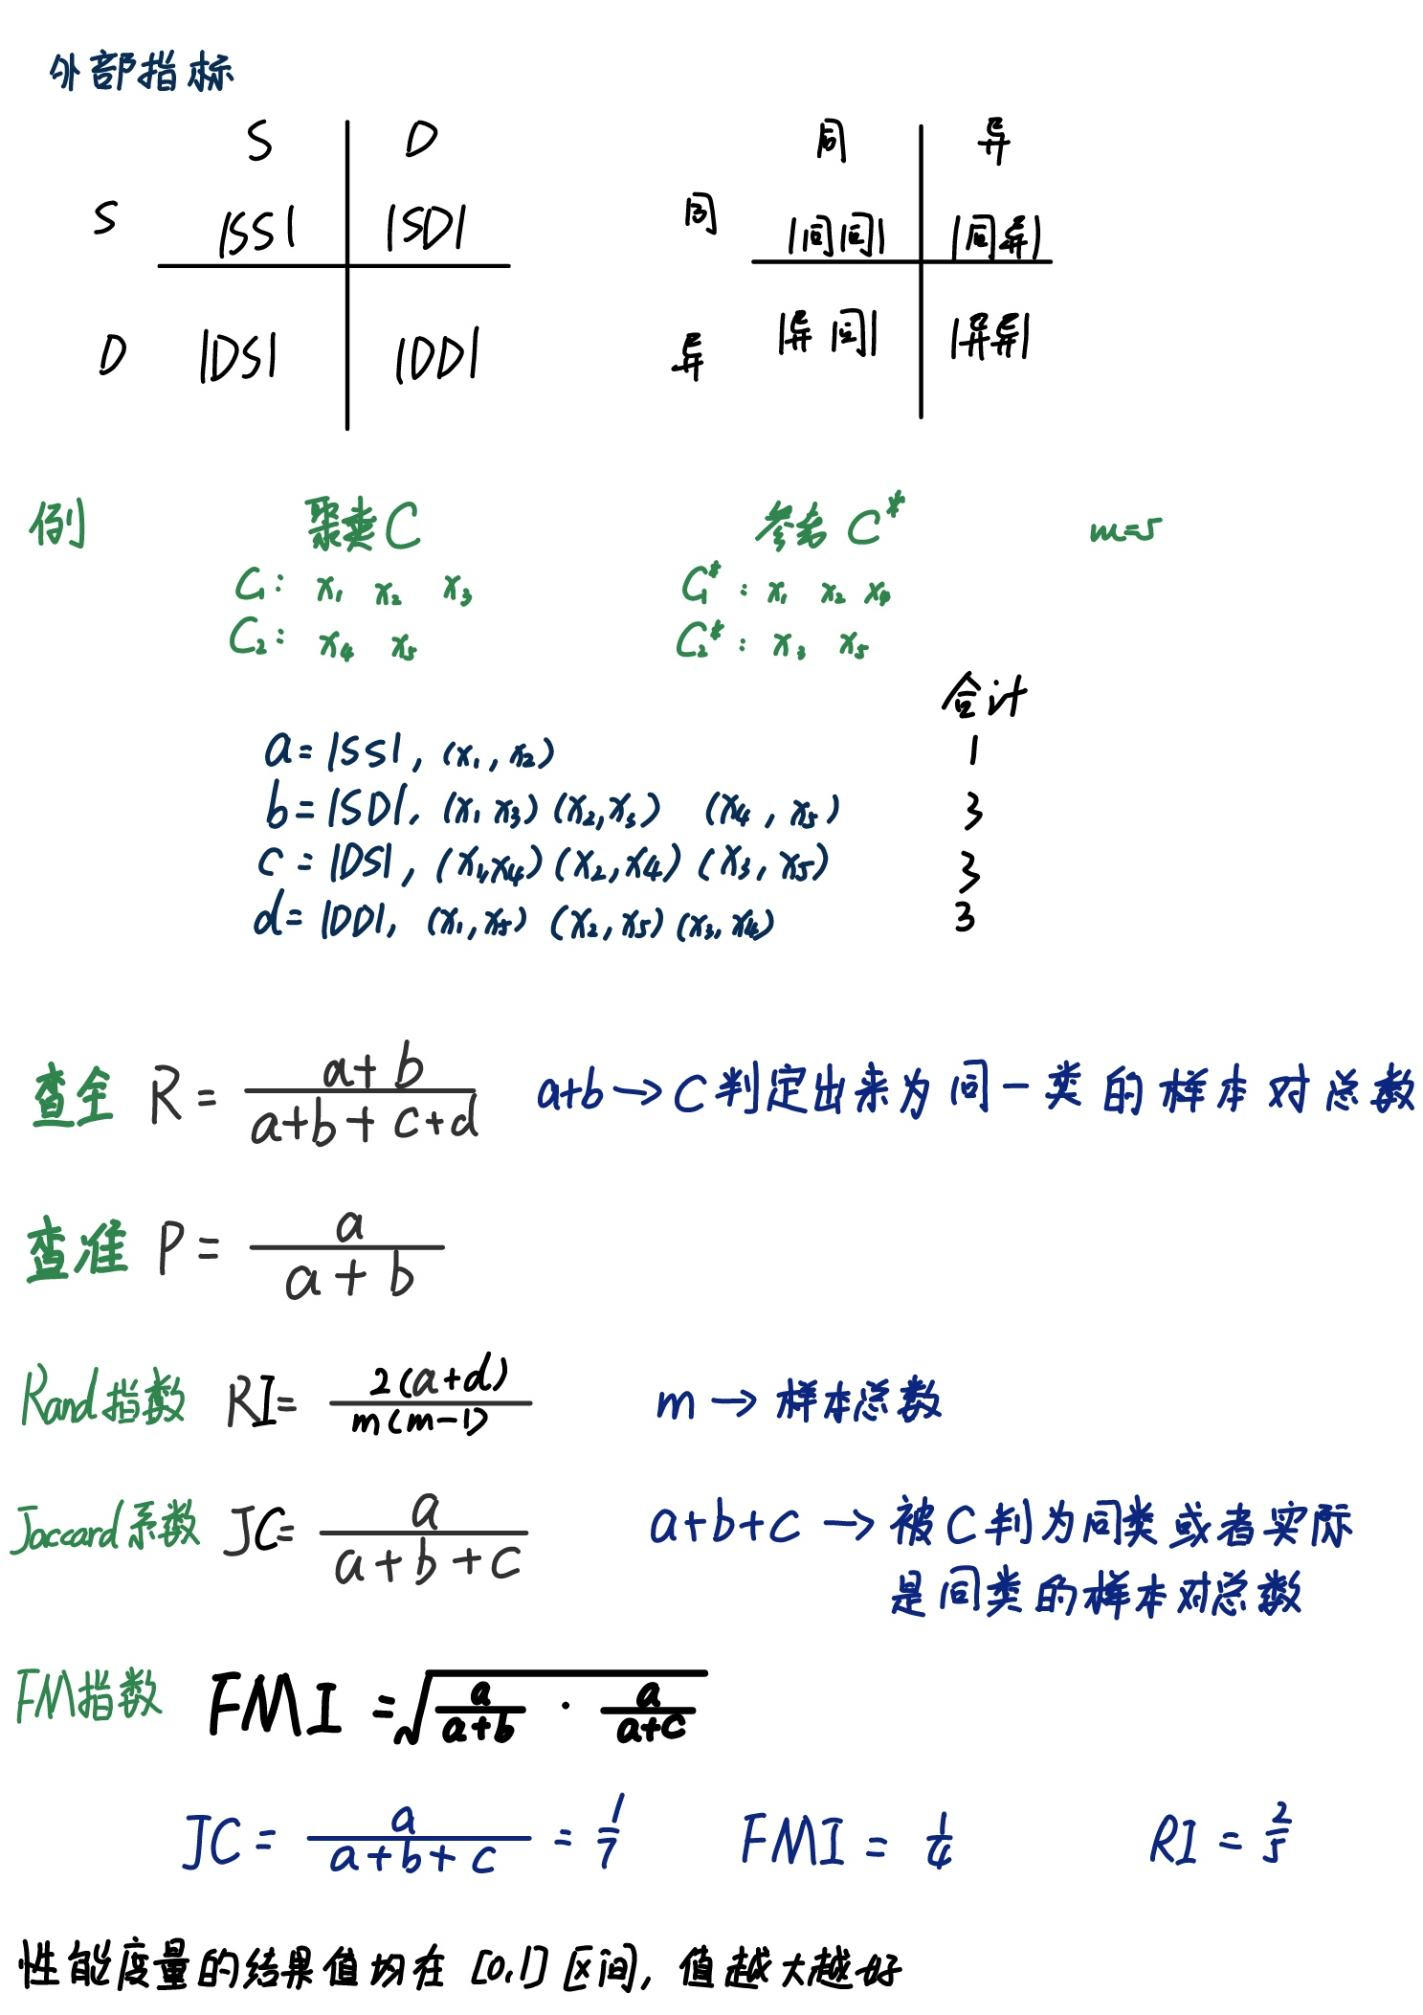 外部指标
S D 同 异
S |SS| |SD| 同 |同同| |同异|
D |DS| |DD| 异 |异同| |异异|
例 聚类C 参考 C* m=5
C₁: x₁ x₂ x₃ C₁*: x₁ x₂ x₄
C₂: x₄ x₅ C₂*: x₃ x₅
合计
a=|SS|, (x₁, x₂) 1
b=|SD|, (x₁ x₃) (x₂,x₃) (x₄, x₅) 3
c=|DS|, (x₁,x₄) (x₂,x₄) (x₃, x₅) 3
d=|DD|, (x₁,x₅) (x₂,x₅) (x₃,x₄) 3
查全 R = (a+b)/(a+b+c+d) a+b → C判定出来为同一类的样本对总数
查准 P = a/(a+b)
Rand指数 RI = 2(a+d)/m(m-1) m → 样本总数
Jaccard系数 JC = a/(a+b+c) a+b+c → 被C判为同类或者实际
是同类的样本对总数
FM指数 FMI = √(a/(a+b) · a/(a+c))
JC = a/(a+b+c) = 1/7 FMI = 1/4 RI = 2/5
性能度量的结果值均在[0,1]区间, 值越大越好